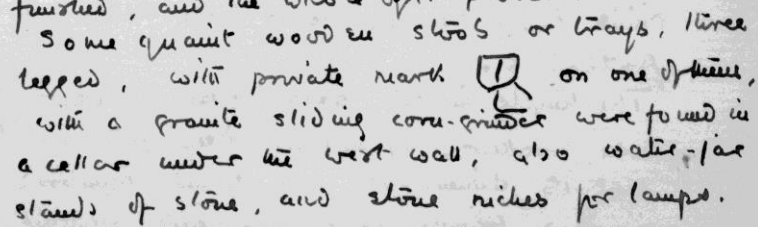 furnished, and the
Some quaint wooden stools or trays, three
legged, with private mark on one of them,
with a granite sliding corn-grinder were found in
a cellar under the west wall, also water-jar
stands of stone, and stone niches for lamps.